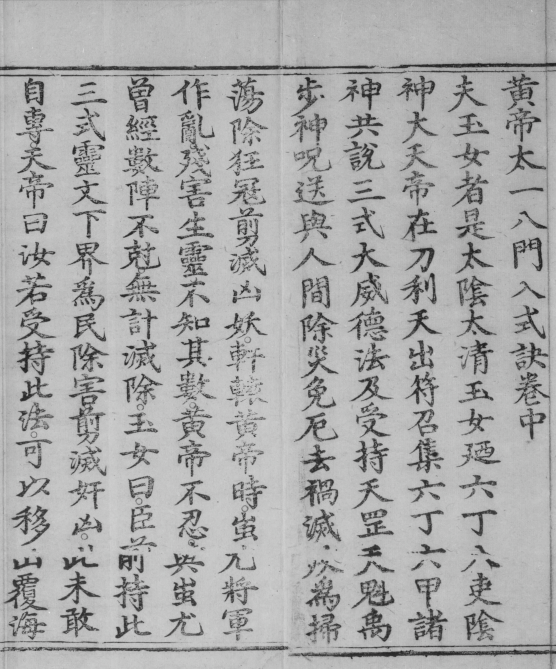 黃帝太一八門入式訣卷中
夫玉女者是太陰太清玉女廼六丁八吏陰
神大天帝在刀利天出符召集六丁六甲諸
神共說三式大威德法及受持天罡天魁禹
步神呪送與人間除災免厄去禍滅以為掃
蕩除狂冠剪滅凶妖軒轅黃帝時蚩尤將軍
作亂殘害生靈不知其數黃帝不忍與蚩尤
曾經數陣不尅無計滅除玉女曰臣前持此
三式靈文下界為民除害剪滅奸凶此未敢
自專天帝曰汝若受持此法可以移山覆海